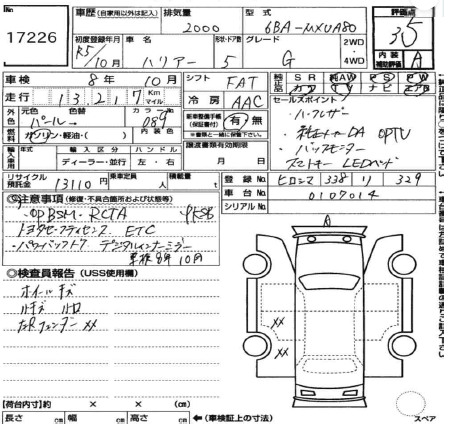 17226
車歴 (自家用以外は記入) 排気量 型式 評価点
2000 6BA-MXUA80 3.5
初度登録年月 車名 形状・ドア数 グレード 2WD・4WD 内装補助評価
R5/10月 ハリアー 5 G A
車検 8年10月 シフト FAT
純正品 SR 純AW PS PW
カワ TV ナビ エアB
走行 13,217 Km マイル
冷房 AAC セールスポイント
外色 元色 パール→ 色替 カラーNo 089
新車整備手帳(保証書付) 有・無
※書類と一緒に保管下さい。
ハーフレザー
純正ナビDA OPTU
燃料 ガソリン・軽油・( ) 内装色
バックモニター
譲渡書類有効期限
月 日
スマートキー LEDヘッド
輸入車用 年式 輸入区分 ハンドル
ディーラー・並行 左・右
リサイクル預託金 13110円 乗車定員 人 積載量 t
登録No. ヒロシマ 338 リ 329
車台No. 0107014
シリアルNo.
◎注意事項 (修復・不具合箇所および状態等)
OPBSM・RCTA PKSB
トヨタセーフティセンス ETC
パワーバックドア デジタルインナーミラー
車検8年10月
◎検査員報告 (USS使用欄)
ホイールキズ
左Rフェンダー XX
A
XX
XX
【荷台内寸】約 × × (cm)
長さ cm 幅 cm 高さ cm ←(車検証上の寸法)
スペア